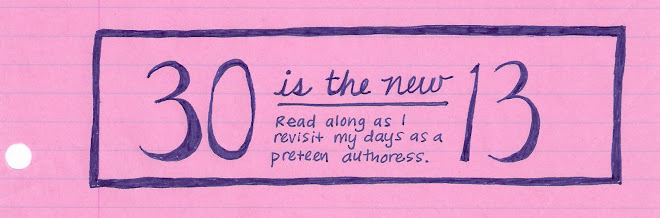 30 is the new 13
Read along as I
revisit my days as a
preteen authoress.